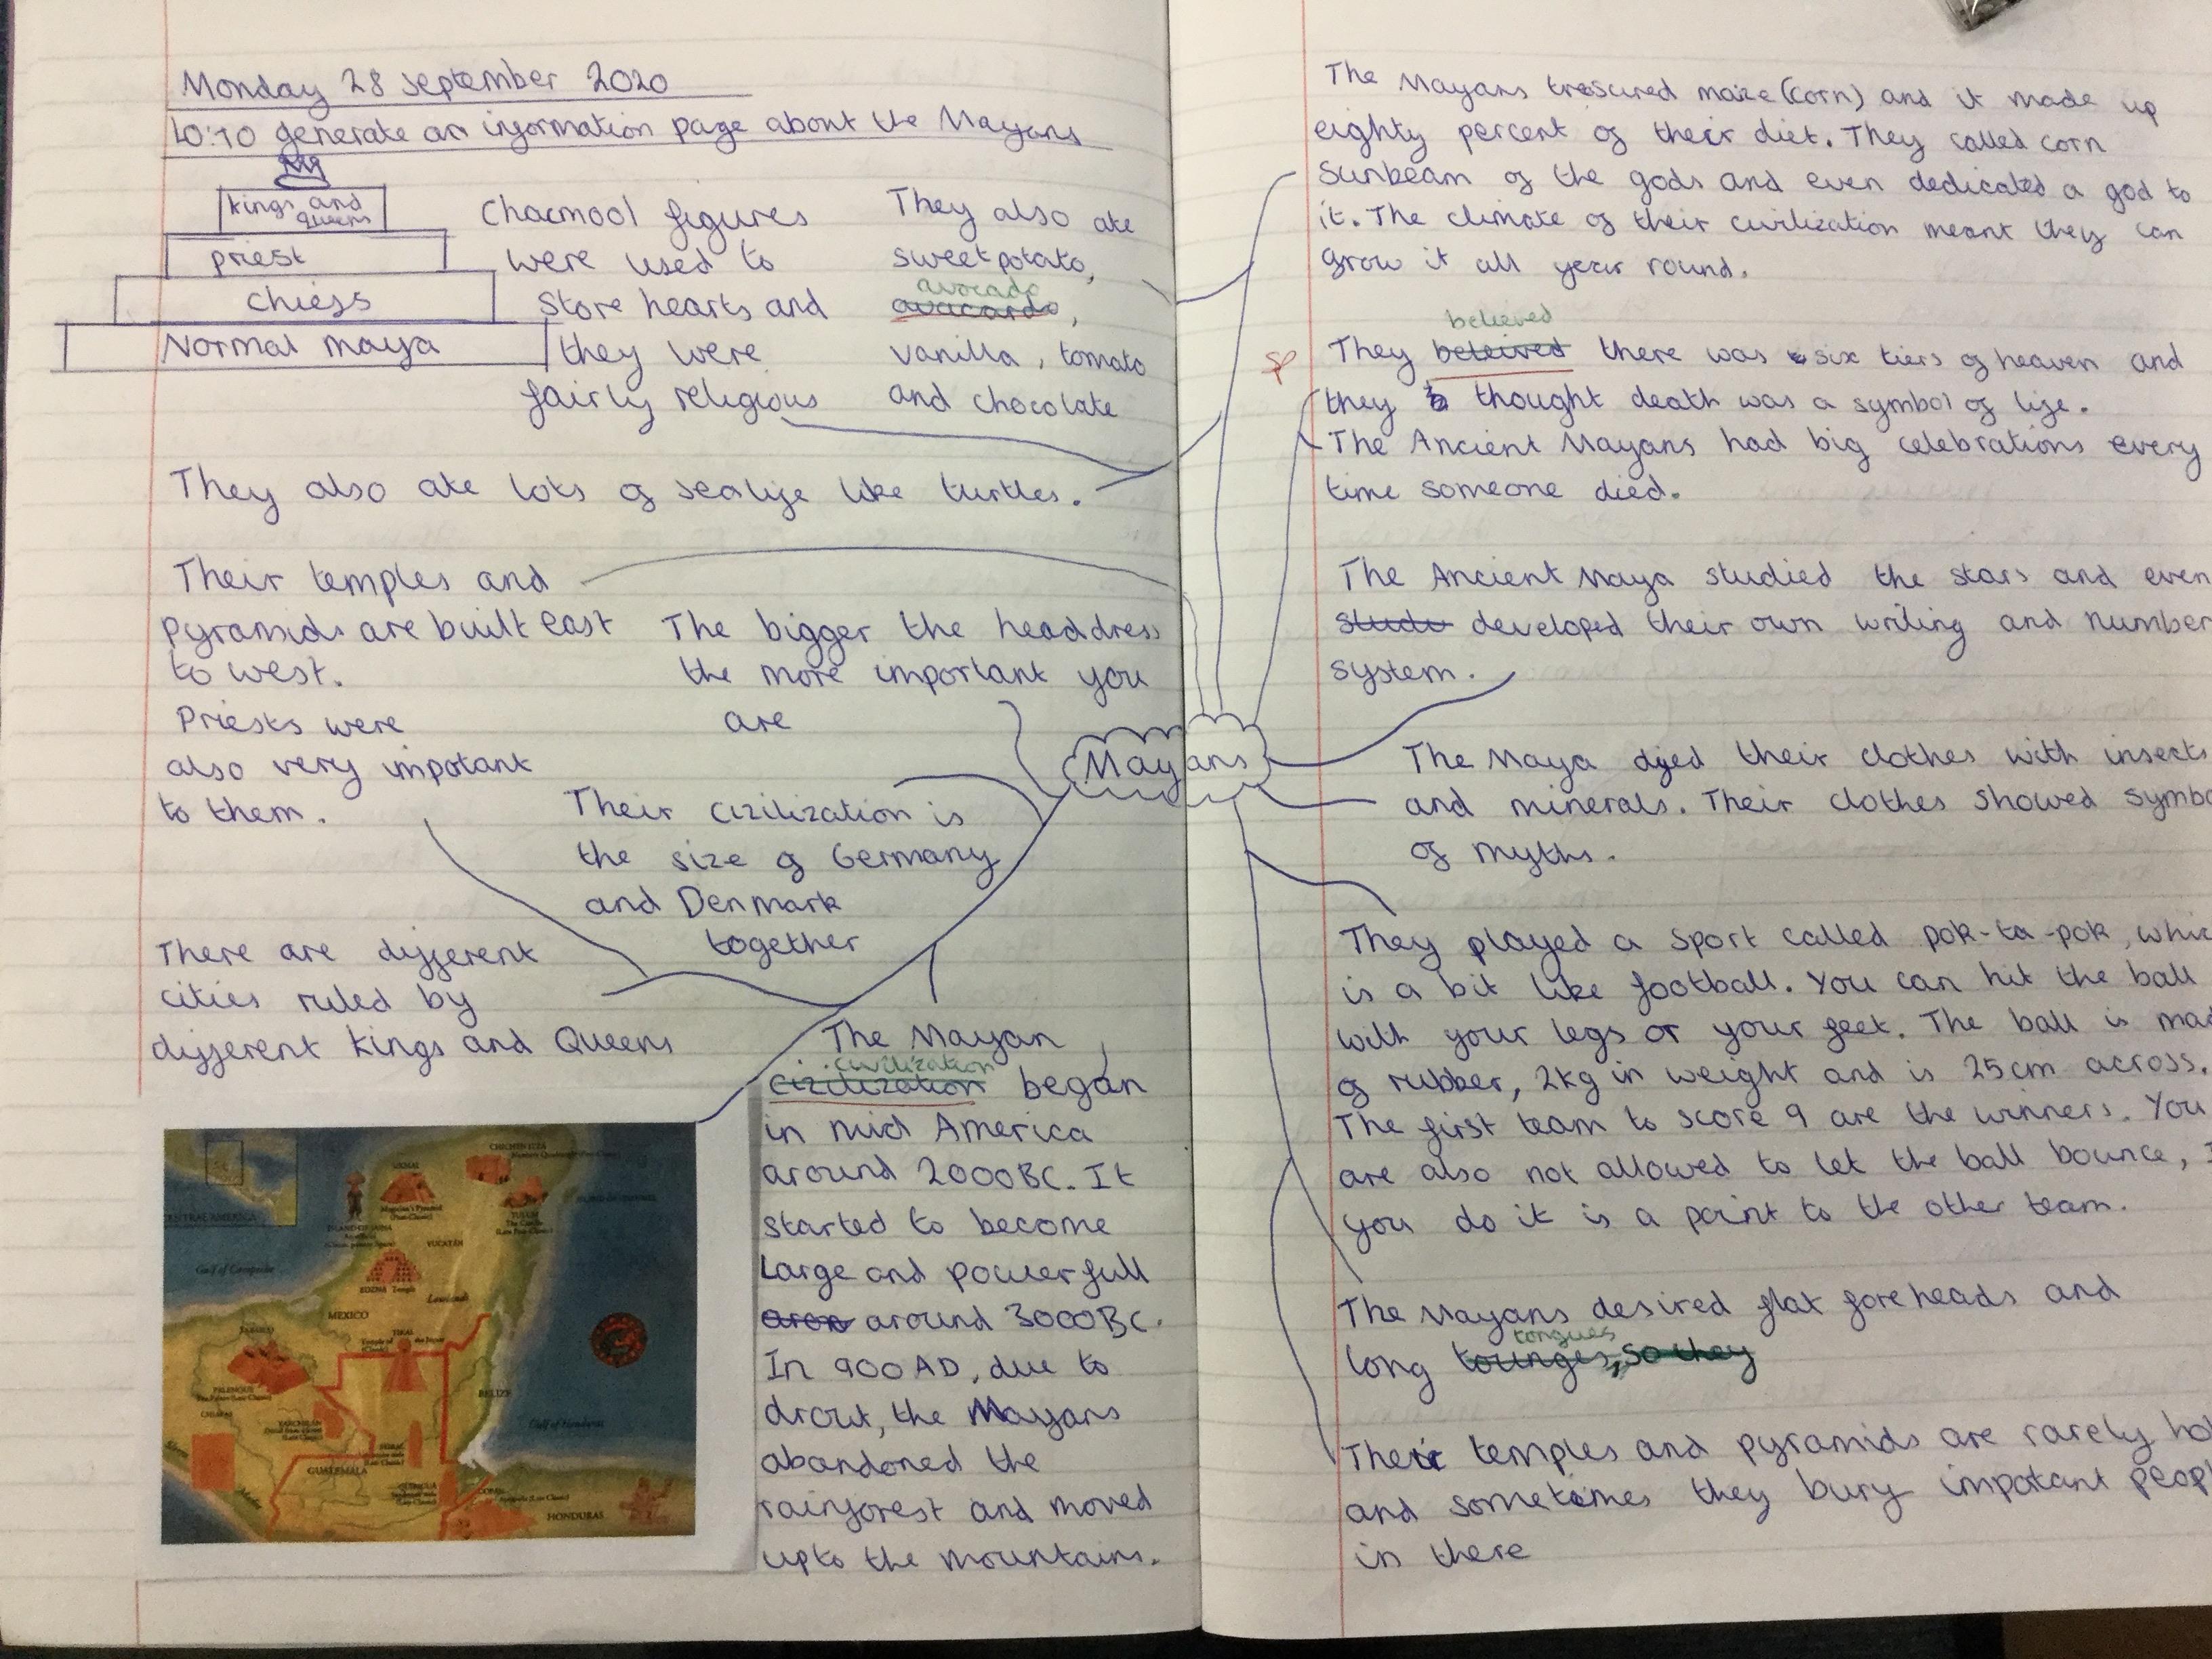 Monday 28 September 2020
LO:TO generate an information page about the Mayans
kings and
queens
priest
chiefs
Normal maya
Chacmool figures
were used to
store hearts and
they were
fairly religious
They also ate
sweet potato,
avocado
avacardo,
vanilla, tomato
and chocolate
They also ate lots of sealife like turtles.
Their temples and
pyramids are built east
to west.
The bigger the headdress
the more important you
are
Priests were
also very impotant
to them.
Their cizilization is
the size of Germany
and Denmark
together
There are different
cities ruled by
different kings and Queens
The Mayan
civilization
cizilization began
in mid America
around 2000BC. It
started to become
Large and powerfull
around 3000BC.
In 900AD, due to
drout, the Mayans
abandoned the
rainforest and moved
upto the mountains.
CENTRAL AMERICA
Gulf of Campeche
CHICHEN ITZA
UXMAL
TULUM
YUCATÁN
EDZNA Temple
Lowlands
MEXICO
TIKAL
PALENQUE
CHIAPAS
BELIZE
Gulf of Honduras
GUATEMALA
COPAN
HONDURAS
Mayans
The Mayans tresured maize (corn) and it made up
eighty percent of their diet. They called corn
Sunbeam of the gods and even dedicated a god to
it. The climate of their civilization meant they can
grow it all year round.
believed
sp
They beleived there was six tiers of heaven and
they thought death was a symbol of life.
The Ancient Mayans had big celebrations every
time someone died.
The Ancient Maya studied the stars and even
developed their own writing and number
system.
The Maya dyed their clothes with insects
and minerals. Their clothes showed symbo
of myths.
They played a sport called pok-ta-pok, whic
is a bit like football. You can hit the ball
with your legs or your feet. The ball is mad
of rubber, 2kg in weight and is 25cm across.
The first team to score 9 are the winners. You
are also not allowed to let the ball bounce, I
you do it is a point to the other team.
The Mayans desired flat foreheads and
tongues
long tounges, so they
Their temples and pyramids are rarely hol
and sometimes they bury impotant peopl
in there